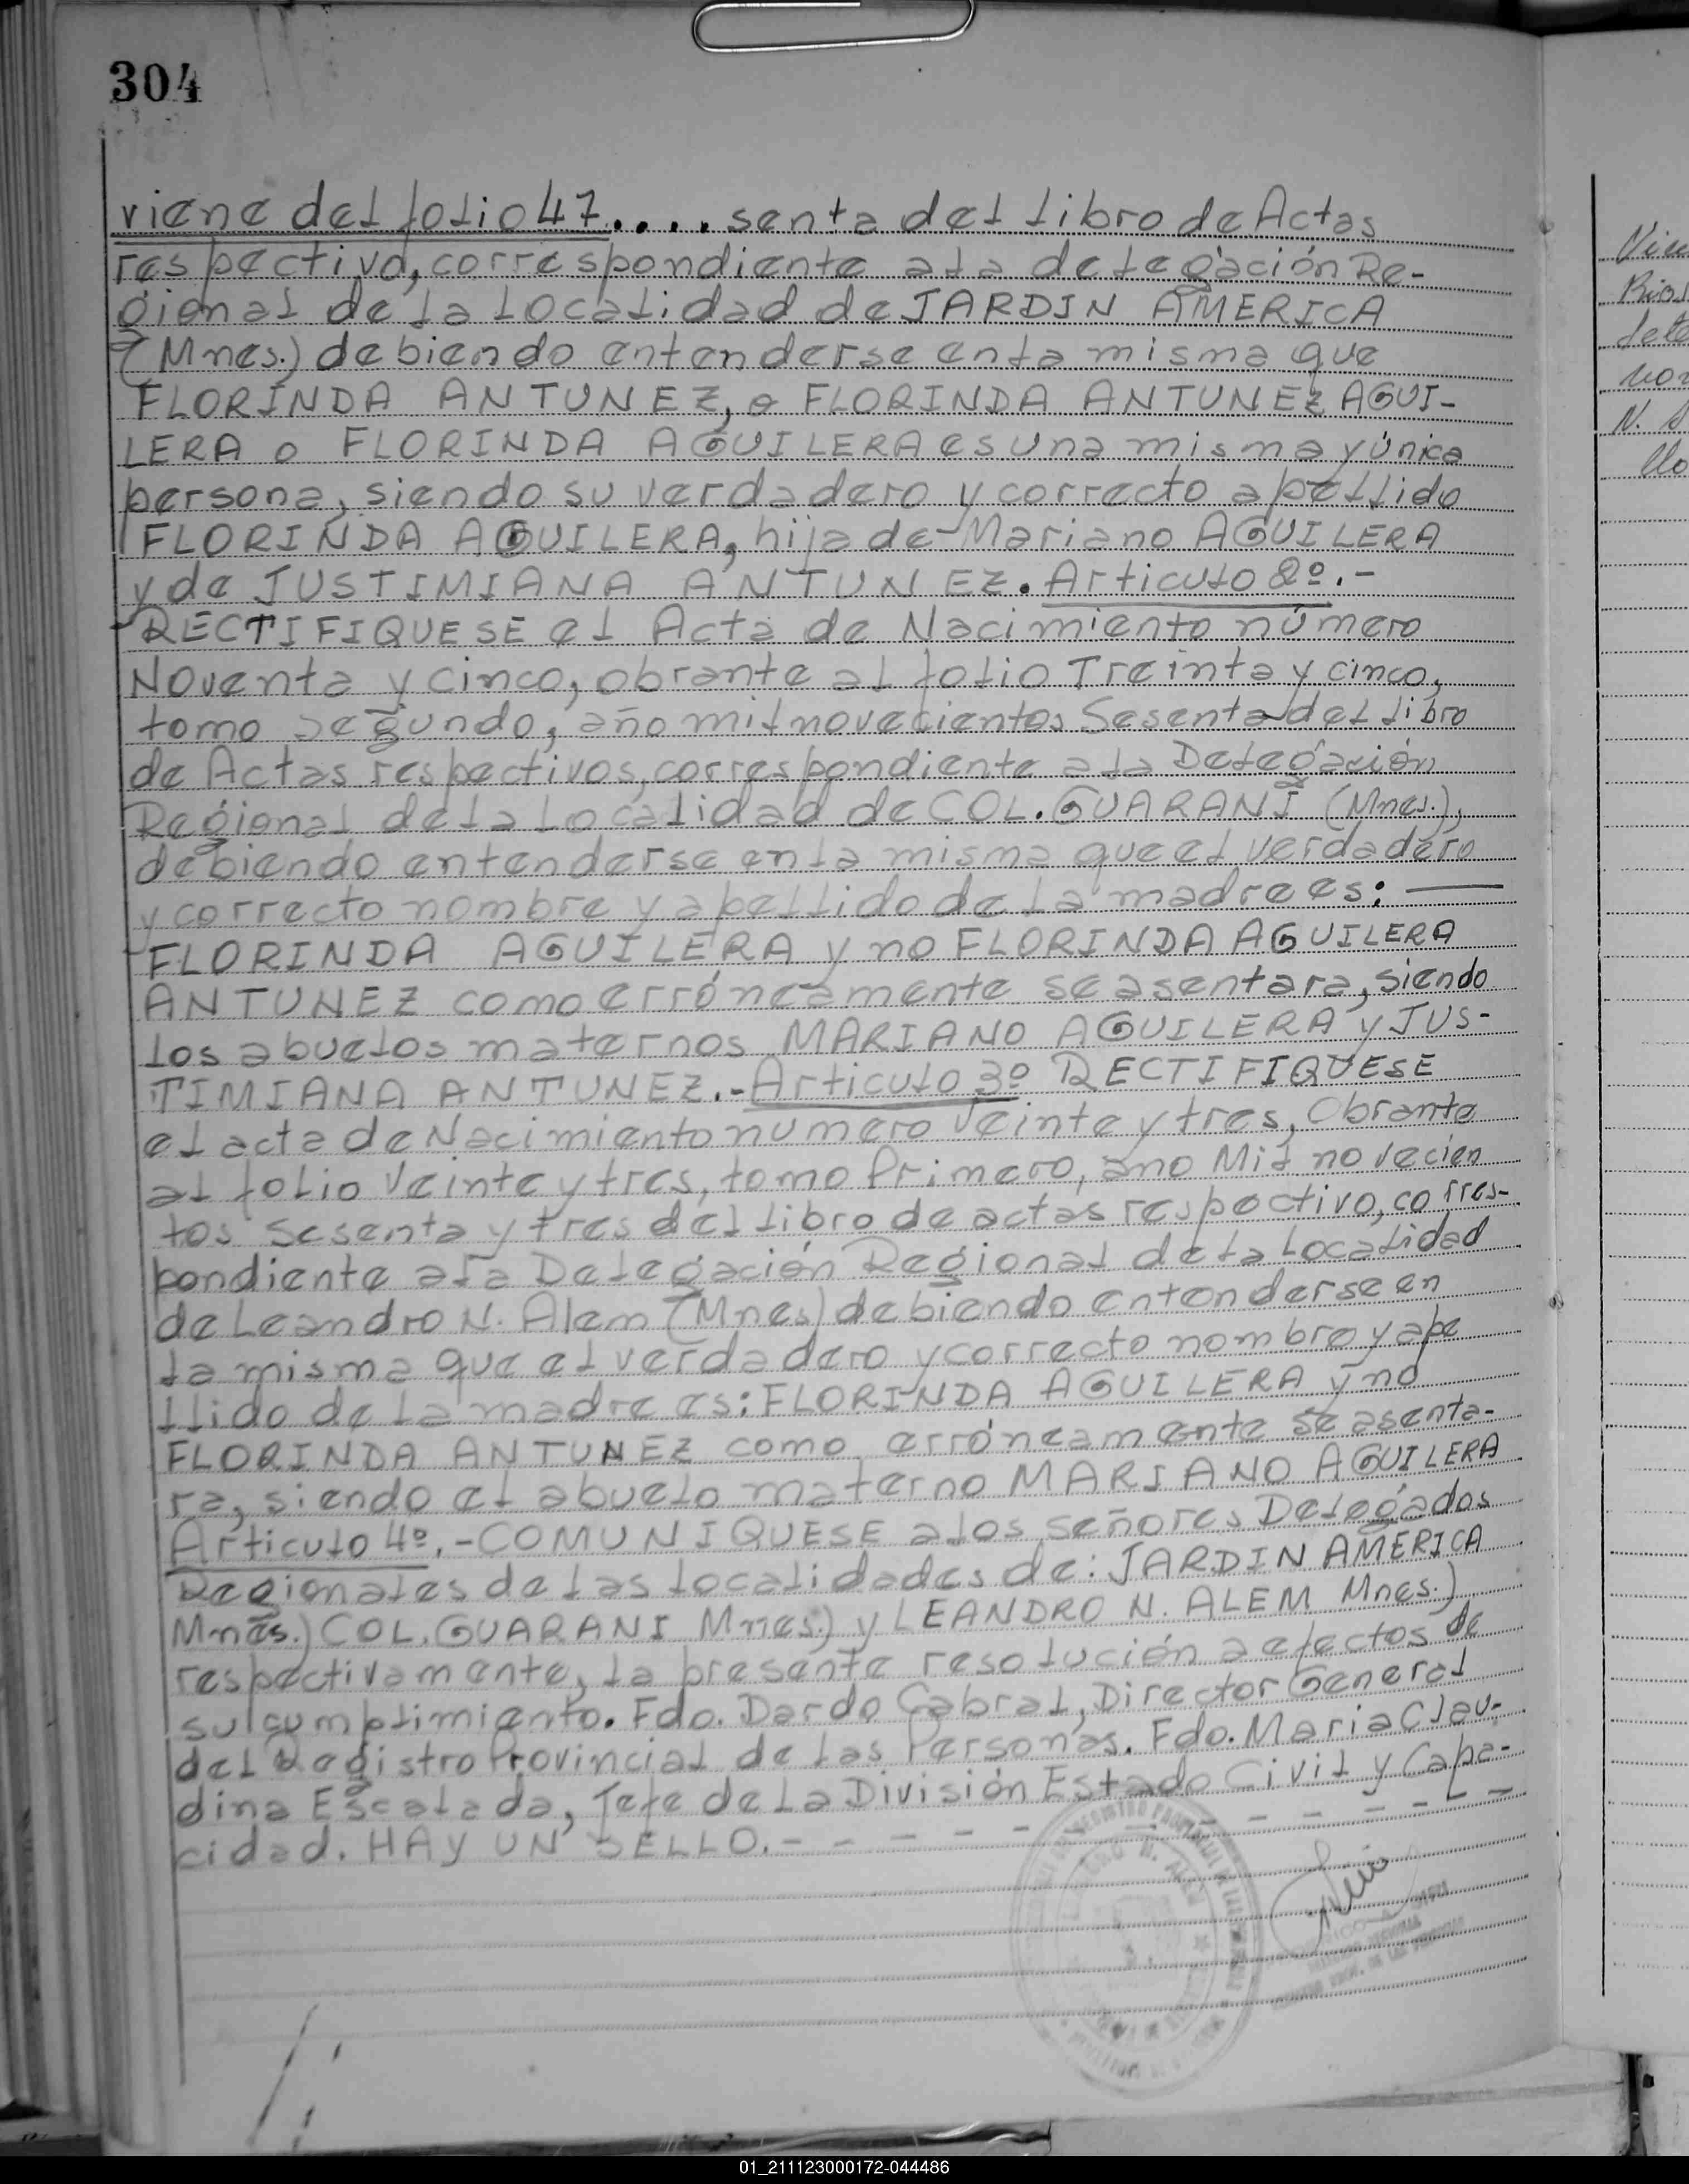 304
viene del folio 47.... senta del libro de Actas
respectivo, correspondiente a la delegación Re-
gional de la Localidad de JARDIN AMERICA
(Mnes.) debiendo entenderse en la misma que
FLORINDA ANTUNEZ, o FLORINDA ANTUNEZ AGUI-
LERA o FLORINDA AGUILERA es una misma y única
persona, siendo su verdadero y correcto apellido
FLORINDA AGUILERA, hija de Mariano AGUILERA
y de JUSTIMIANA ANTUNEZ. Articulo 2º.-
RECTIFIQUESE el Acta de Nacimiento número
Noventa y cinco, obrante al folio Treinta y cinco,
tomo segundo, año mil novecientos Sesenta del libro
de Actas respectivos, correspondiente a la Delegación
Regional de la Localidad de COL. GUARANI (Mnes.),
debiendo entenderse en la misma que el verdadero
y correcto nombre y apellido de la madre es: —
FLORINDA AGUILERA y no FLORINDA AGUILERA
ANTUNEZ como erróneamente se asentara, siendo
los abuelos maternos MARIANO AGUILERA y JUS-
TIMIANA ANTUNEZ.- Articulo 3º RECTIFIQUESE
el acta de Nacimiento numero Veinte y tres, Obrante
al folio Veinte y tres, tomo Primero, año Mil novecien
tos Sesenta y tres del libro de actas respectivo, corres-
pondiente a la Delegación Regional de la Localidad
de Leandro N. Alem (Mnes) debiendo entenderse en
la misma que el verdadero y correcto nombre y ape
llido de la madre es: FLORINDA AGUILERA y no
FLORINDA ANTUNEZ como erróneamente se asenta-
ra, siendo el abuelo materno MARIANO AGUILERA
Articulo 4º.- COMUNIQUESE a los señores Delegados
Regionales de las localidades de: JARDIN AMERICA
Mnes.) COL. GUARANI Mnes.) y LEANDRO N. ALEM Mnes.)
respectivamente, la presente resolución a efectos de
su cumplimiento. Fdo. Dardo Cabral, Director General
del Registro Provincial de las Personas. Fdo. Maria Clau-
dina Escalada, Jefe de la División Estado Civil y Capa-
cidad. HAY UN SELLO.- - - - - - - - - - -
01_211123000172-044486